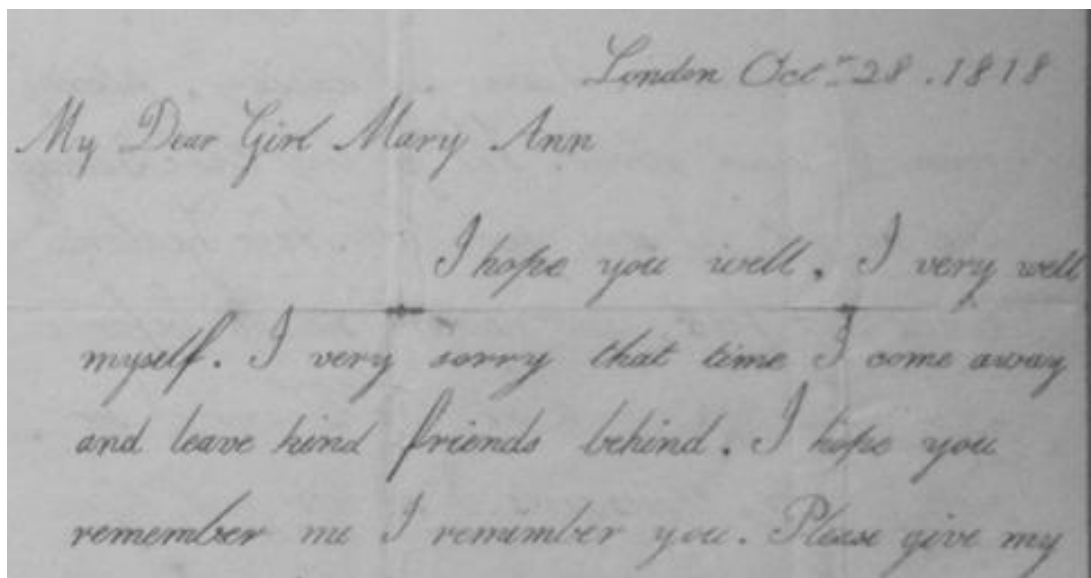 London Octr 28 . 1818
My Dear Girl Mary Ann
I hope you well . I very well
myself . I very sorry that time I come away
and leave kind friends behind . I hope you
remember me I remember you . Please give my